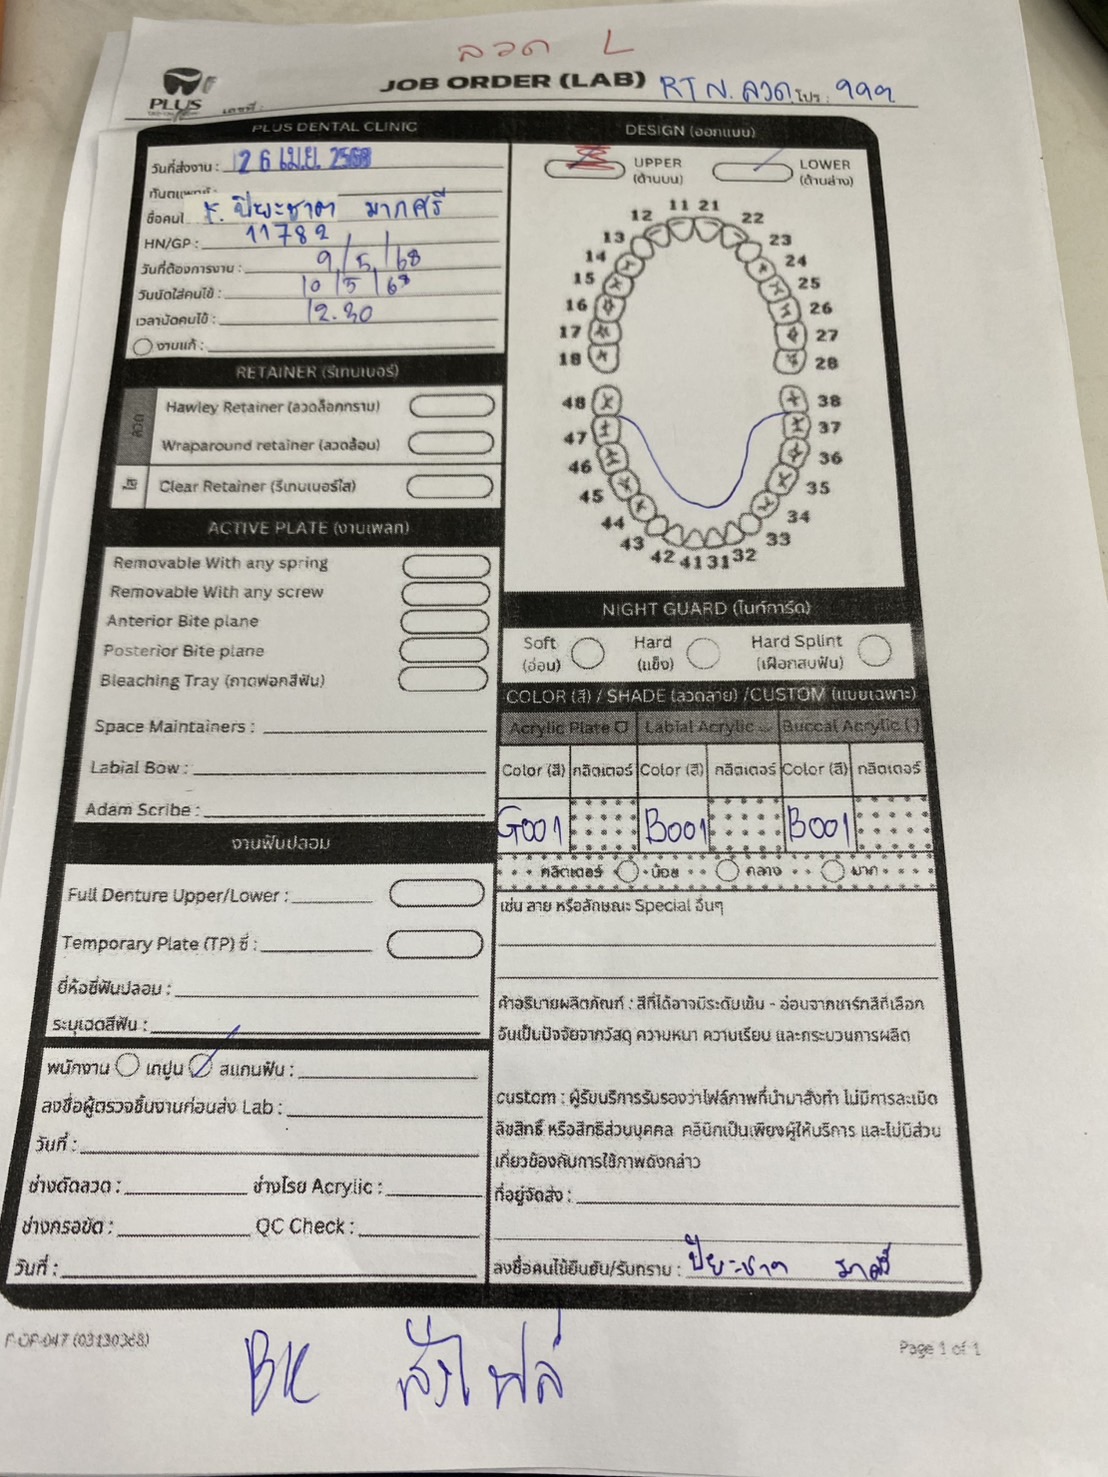 ลวด L
JOB ORDER (LAB) RTN.ลวด โปร : 999
PLUS
เลขที่ :
PLUS DENTAL CLINIC
วันที่ส่งงาน : 26 เม.ย. 2568
ทันตแพทย์ :
ชื่อคนไ ปิยะชาต มากศรี
HN/GP : 11782
วันที่ต้องการงาน : 9/5/68
วันนัดใส่คนไข้ : 10/5/68
เวลานัดคนไข้ : 12.30
งานแก้ :
RETAINER (รีเทนเนอร์)
ลวด
Hawley Retainer (ลวดล็อกกราม)
Wraparound retainer (ลวดล้อม)
ใส
Clear Retainer (รีเทนเนอร์ใส)
ACTIVE PLATE (งานเพลท)
Removable With any spring
Removable With any screw
Anterior Bite plane
Posterior Bite plane
Bleaching Tray (ถาดฟอกสีฟัน)
Space Maintainers :
Labial Bow :
Adam Scribe :
งานฟันปลอม
Full Denture Upper/Lower :
Temporary Plate (TP) ซี่ :
ยี่ห้อซี่ฟันปลอม :
ระบุเฉดสีฟัน :
พนักงาน เทปูน สแกนฟัน :
ลงชื่อผู้ตรวจชิ้นงานก่อนส่ง Lab :
วันที่ :
ช่างดัดลวด : ช่างโรย Acrylic :
ช่างกรอขัด : QC Check :
วันที่ :
DESIGN (ออกแบบ)
UPPER (ด้านบน) LOWER (ด้านล่าง)
11 21
12 22
13 23
14 24
15 25
16 26
17 27
18 28
48 38
47 37
46 36
45 35
44 34
43 33
42 41 31 32
NIGHT GUARD (ไนท์การ์ด)
Soft (อ่อน) Hard (แข็ง) Hard Splint (เฝือกสบฟัน)
COLOR (สี) / SHADE (ลวดลาย) /CUSTOM (แบบเฉพาะ)
Acrylic Plate Labial Acrylic Buccal Acrylic ( )
Color (สี) กลิตเตอร์ Color (สี) กลิตเตอร์ Color (สี) กลิตเตอร์
G001 B001 B001
กลิตเตอร์ น้อย กลาง มาก
เช่น ลาย หรือลักษณะ Special อื่นๆ
คำอธิบายผลิตภัณฑ์ : สีที่ได้อาจมีระดับเข้ม - อ่อนจากชาร์ทสีที่เลือก
อันเป็นปัจจัยจากวัสดุ ความหนา ความเรียบ และกระบวนการผลิต
custom : ผู้รับบริการรับรองว่าไฟล์ภาพที่นำมาสั่งทำ ไม่มีการละเมิด
ลิขสิทธิ์ หรือสิทธิส่วนบุคคล คลินิกเป็นเพียงผู้ให้บริการ และไม่มีส่วน
เกี่ยวข้องกับการใช้ภาพดังกล่าว
ที่อยู่จัดส่ง :
ลงชื่อคนไข้ยืนยัน/รับทราบ : ปิยะชาต มากศรี
F-OP-047 (03130368) Page 1 of 1
BK ส่งไฟล์